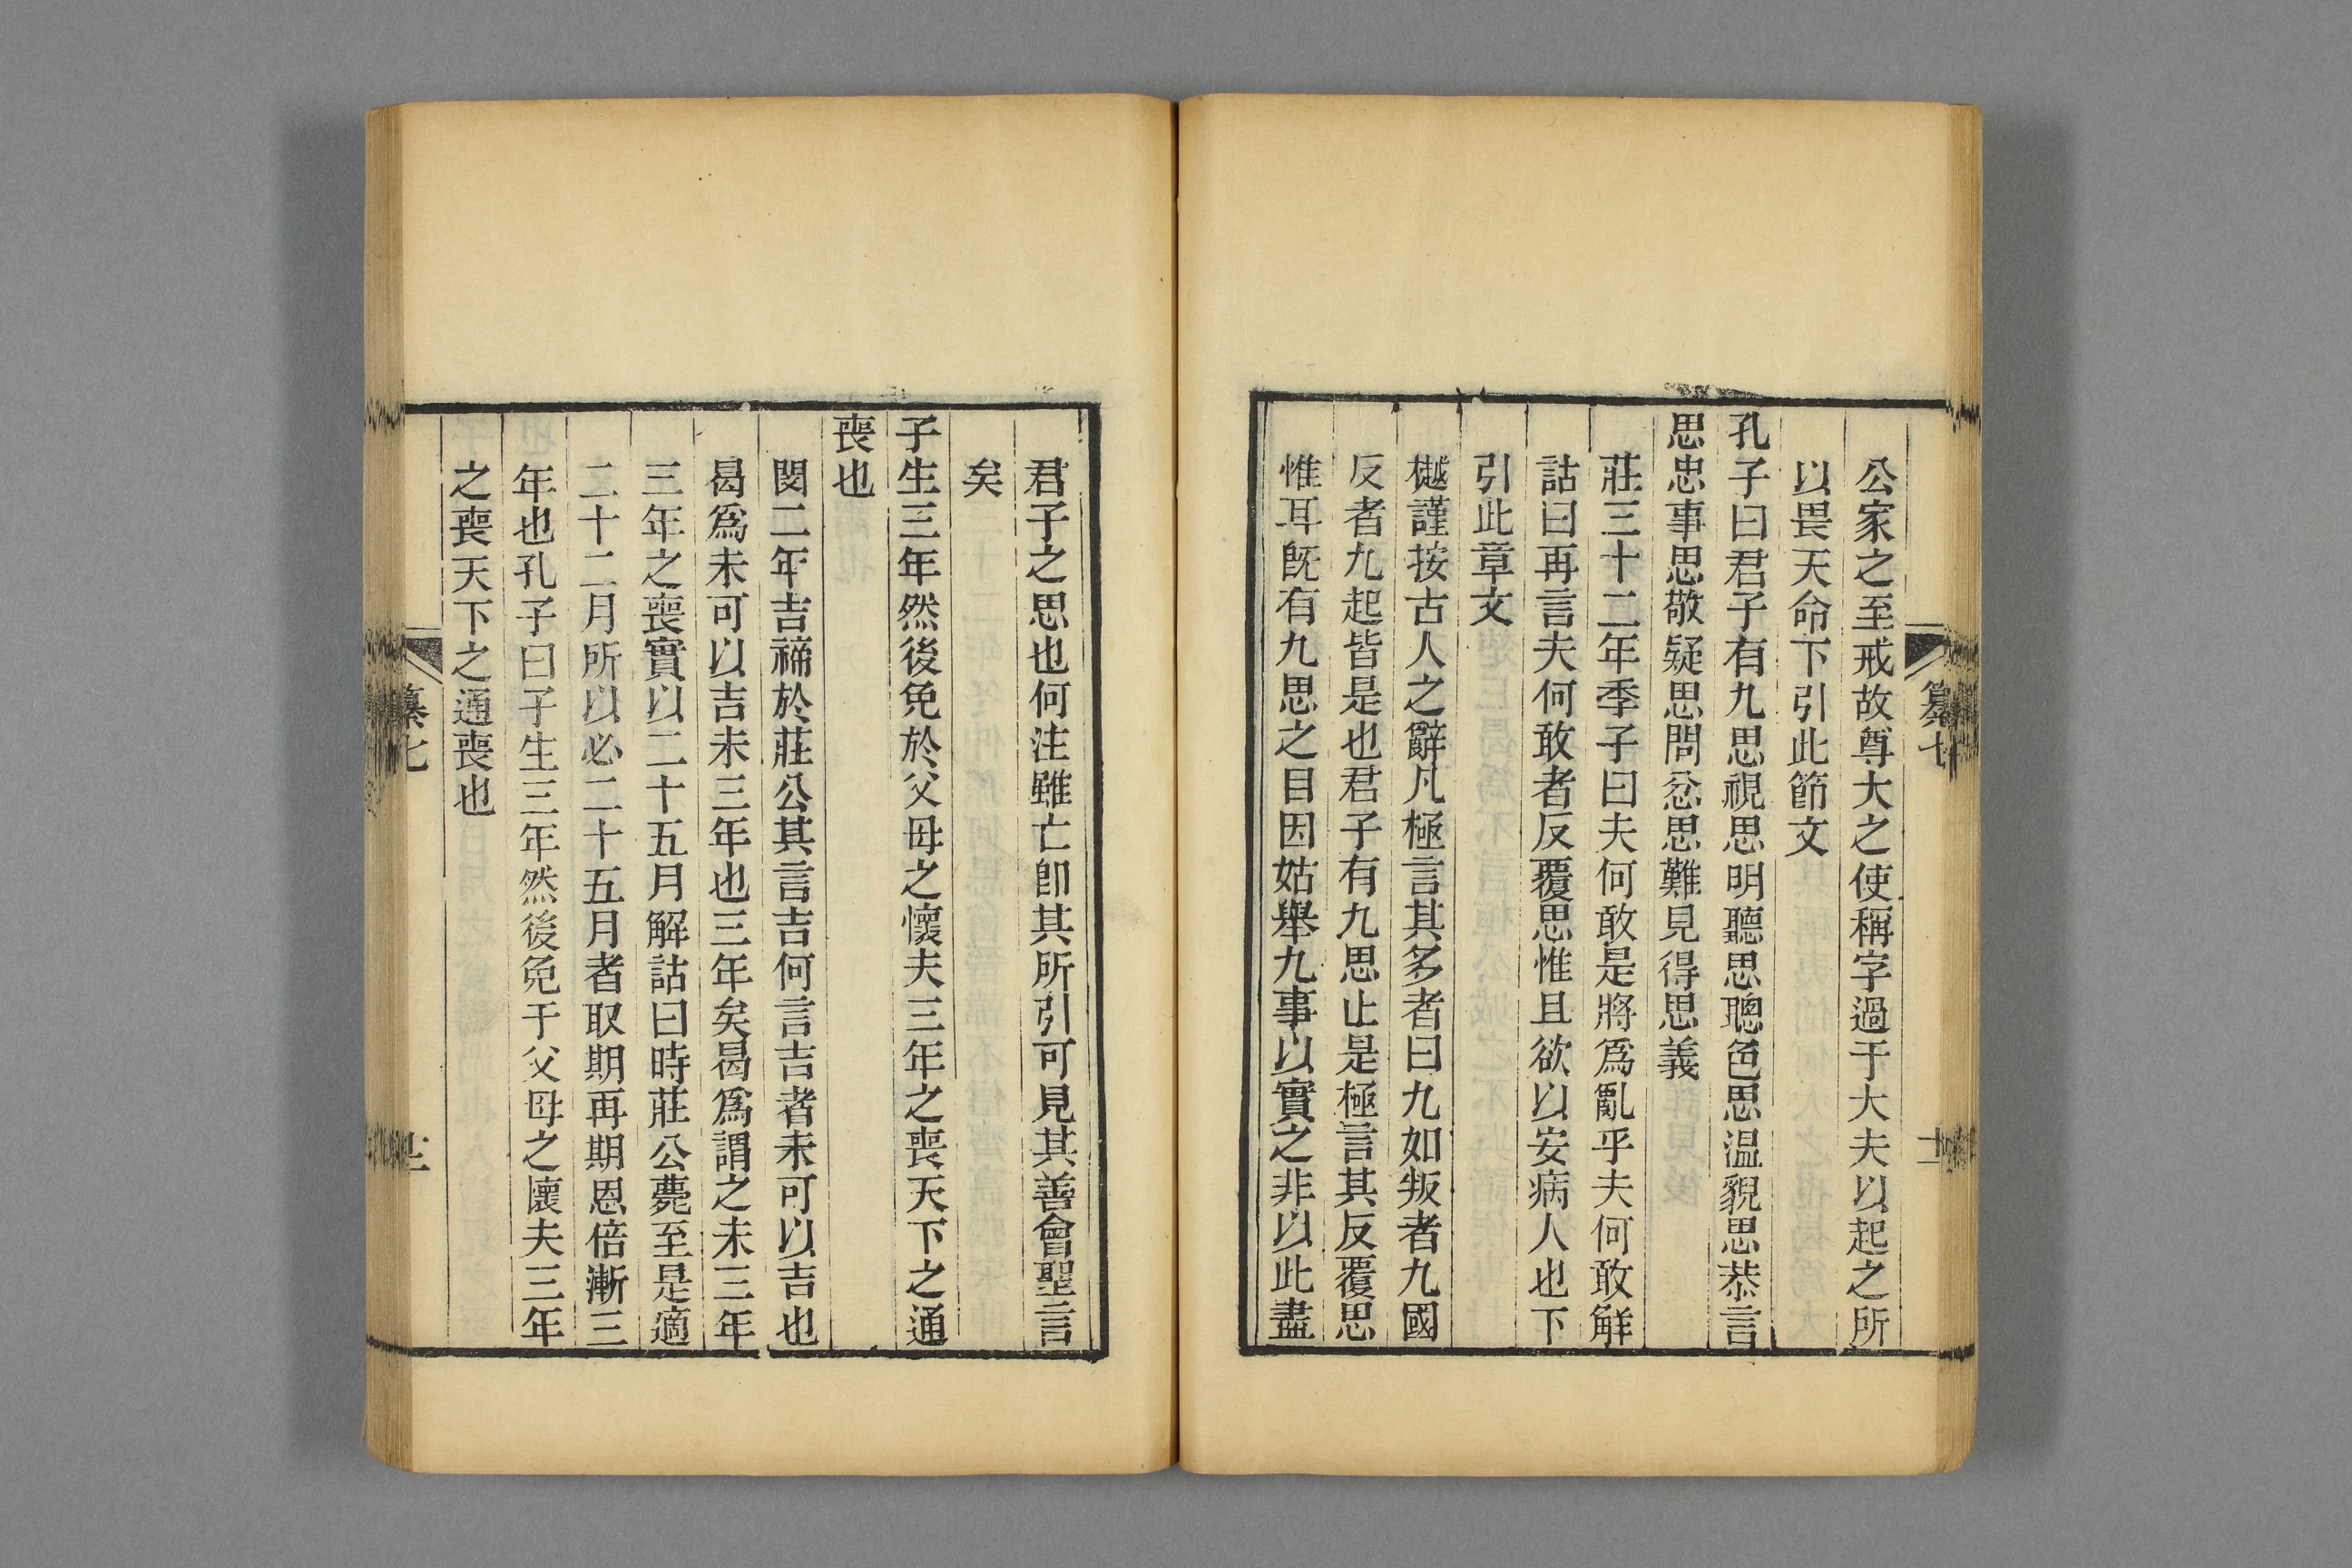 公家之至戒故尊大之使稱字過于大夫以起之所
以畏天命下引此節文
孔子曰君子有九思視思明聽思聰色思温貌思恭言
思忠事思敬疑思問忿思難見得思義
莊三十二年季子曰夫何敢是將爲亂乎夫何敢解
詁曰再言夫何敢者反覆思惟且欲以安病人也下
引此章文
樾謹按古人之辭凡極言其多者曰九如叛者九國
反者九起皆是也君子有九思止是極言其反覆思
惟耳旣有九思之目因姑舉九事以實之非以此盡
纂七
君子之思也何注雖亡卽其所引可見其善會聖言
矣
子生三年然後免於父母之懷夫三年之喪天下之通
喪也
閔二年吉禘於莊公其言吉何言吉者未可以吉也
曷爲未可以吉未三年也三年矣曷爲謂之未三年
三年之喪實以二十五月解詁曰時莊公薨至是適
二十二月所以必二十五月者取期再期恩倍漸三
年也孔子曰子生三年然後免于父母之懷夫三年
之喪天下之通喪也
纂七